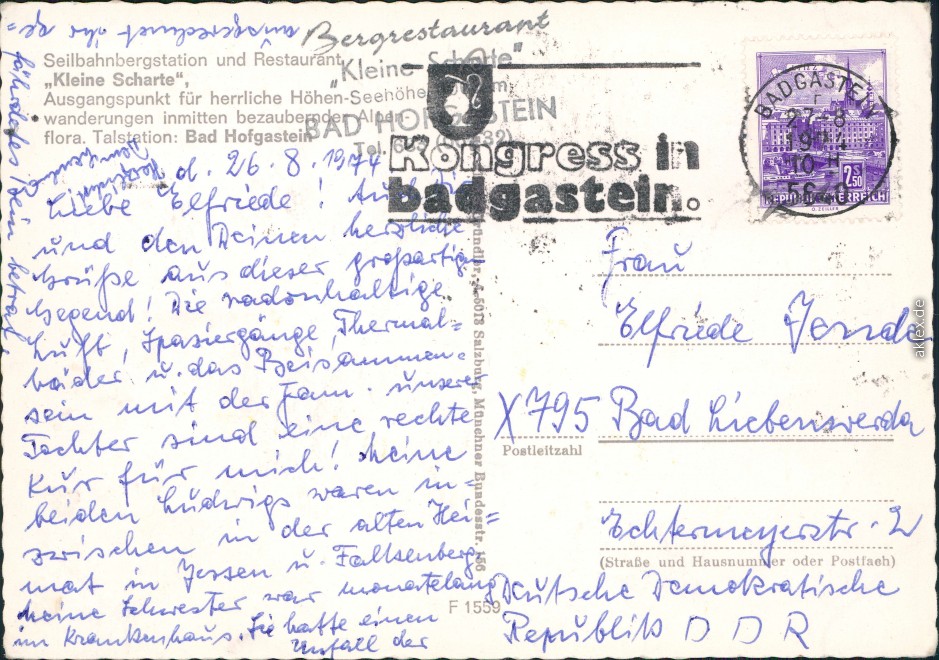 ausgerechnet ihr ge=
fährdetes Bein betraf.
Bergrestaurant
„Kleine Scharte"
BAD HOFGASTEIN
Seilbahnbergstation und Restaurant
„Kleine Scharte",
Ausgangspunkt für herrliche Höhen-
wanderungen inmitten bezaubernder Alpen-
flora. Talstation: Bad Hofgastein
Kongress in
badgastein.
BADGASTEIN
27-8
10-H
2.50
REPUBLIK ÖSTERREICH
d. 26. 8. 1974
Liebe Elfriede! Auch Dir
und den Deinen herzliche
Grüße aus dieser großartigen
Gegend! Die radonhaltige
Luft, Spaziergänge, Thermal=
bäder u. das Beisammen=
sein mit der Fam. unserer
Tochter sind eine rechte
Kur für mich! Meine
beiden Ludwigs waren in=
zwischen in der alten Hei=
mat in Jessen u. Falkenberg.
Meine Schwester war monatelang
im Krankenhaus. Sie hatte einen
Unfall der
Gründler, A-5013 Salzburg, Münchner Bundesstr. 156
F 1559
Frau
Elfriede
X795 Bad Liebenwerda
Postleitzahl
Echtermeyerstr. 2
(Straße und Hausnummer oder Postfach)
Deutsche Demokratische
Republik D D R
akleX.de